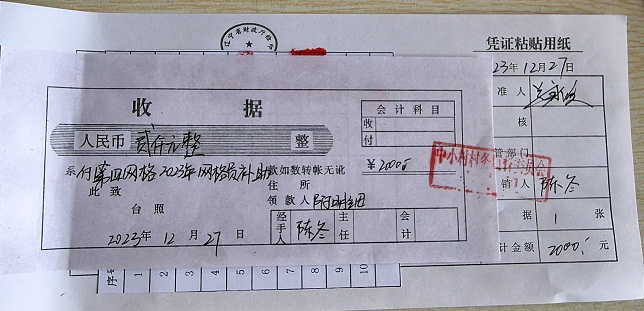 凭证粘贴用纸
23年12月27日
收据
会计科目
收
付
人民币 贰仟元整 整
¥2000
系付第四网格2023年网格员补助款如数转帐无讹
此致 住所
台照 领款人
2023年12月27日
经手人 陈冬 主任 会计
准人
核
管部门
销人 陈冬
据 1 张
计金额 2000 元
序号
1 2 3 4 5 6 7 8 9 10